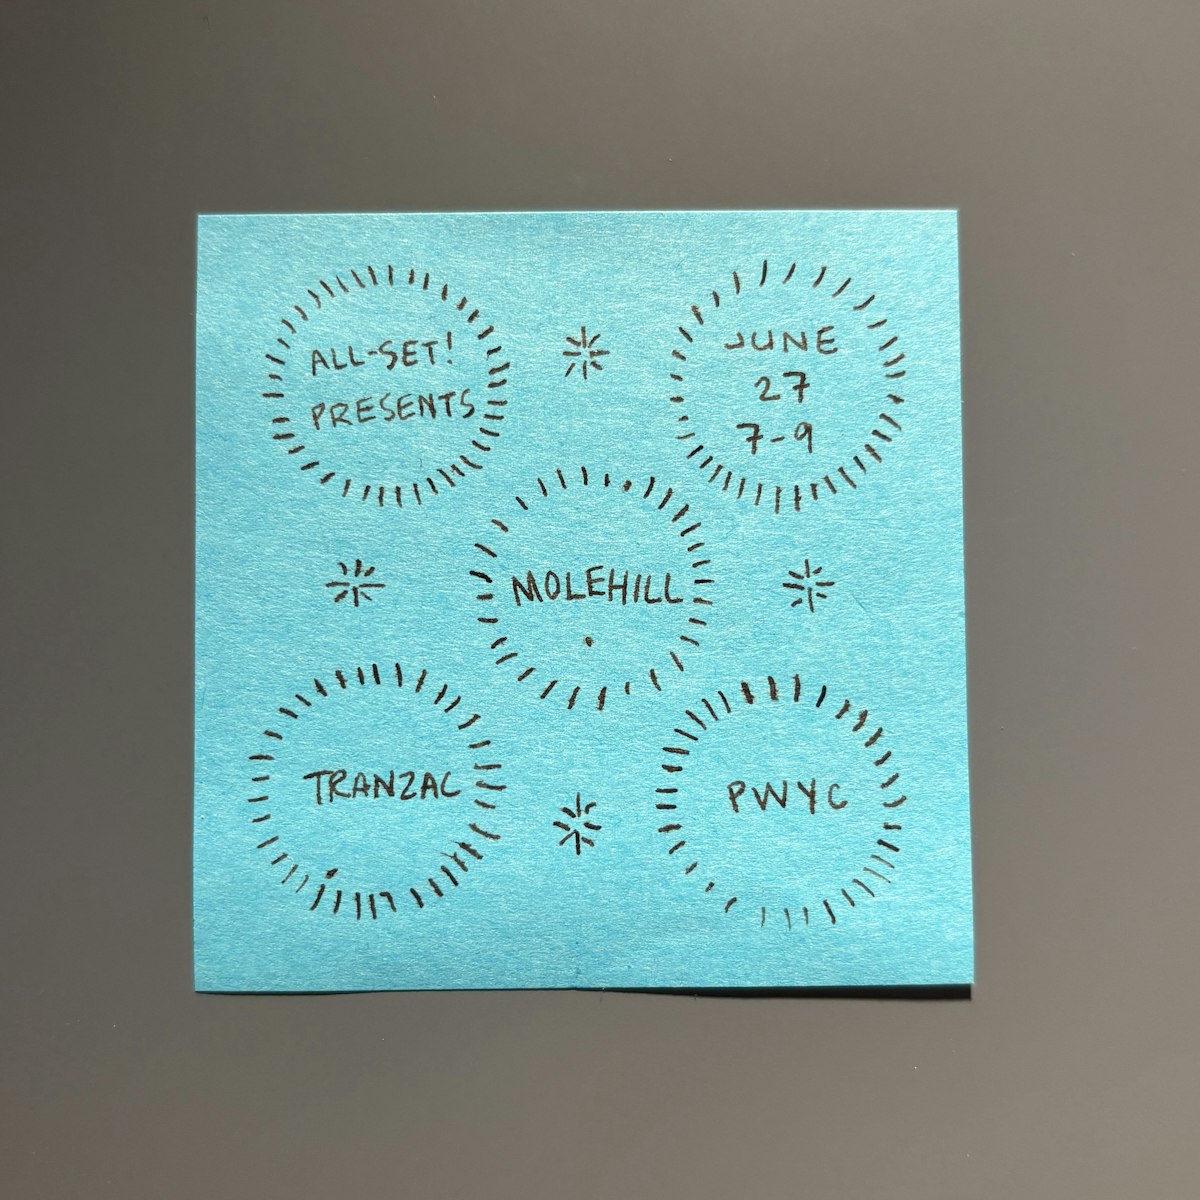 ALL-SET!
PRESENTS
JUNE
27
7-9
MOLEHILL
TRANZAC
PWYC